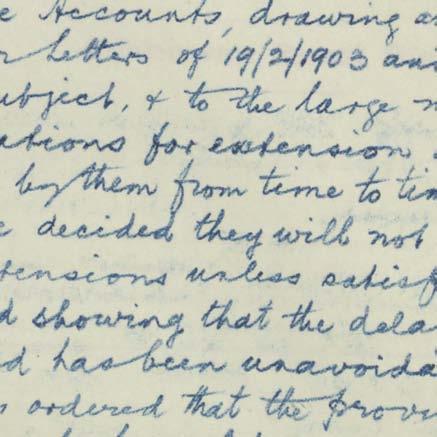 e Accounts, drawing a
r letters of 19/2/1903 and
ubject, & to the large n
ations for extension
by them from time to tim
e decided they will not
tensions unless satisf
d showing that the dela
d has been unavoida
s ordered that the provi